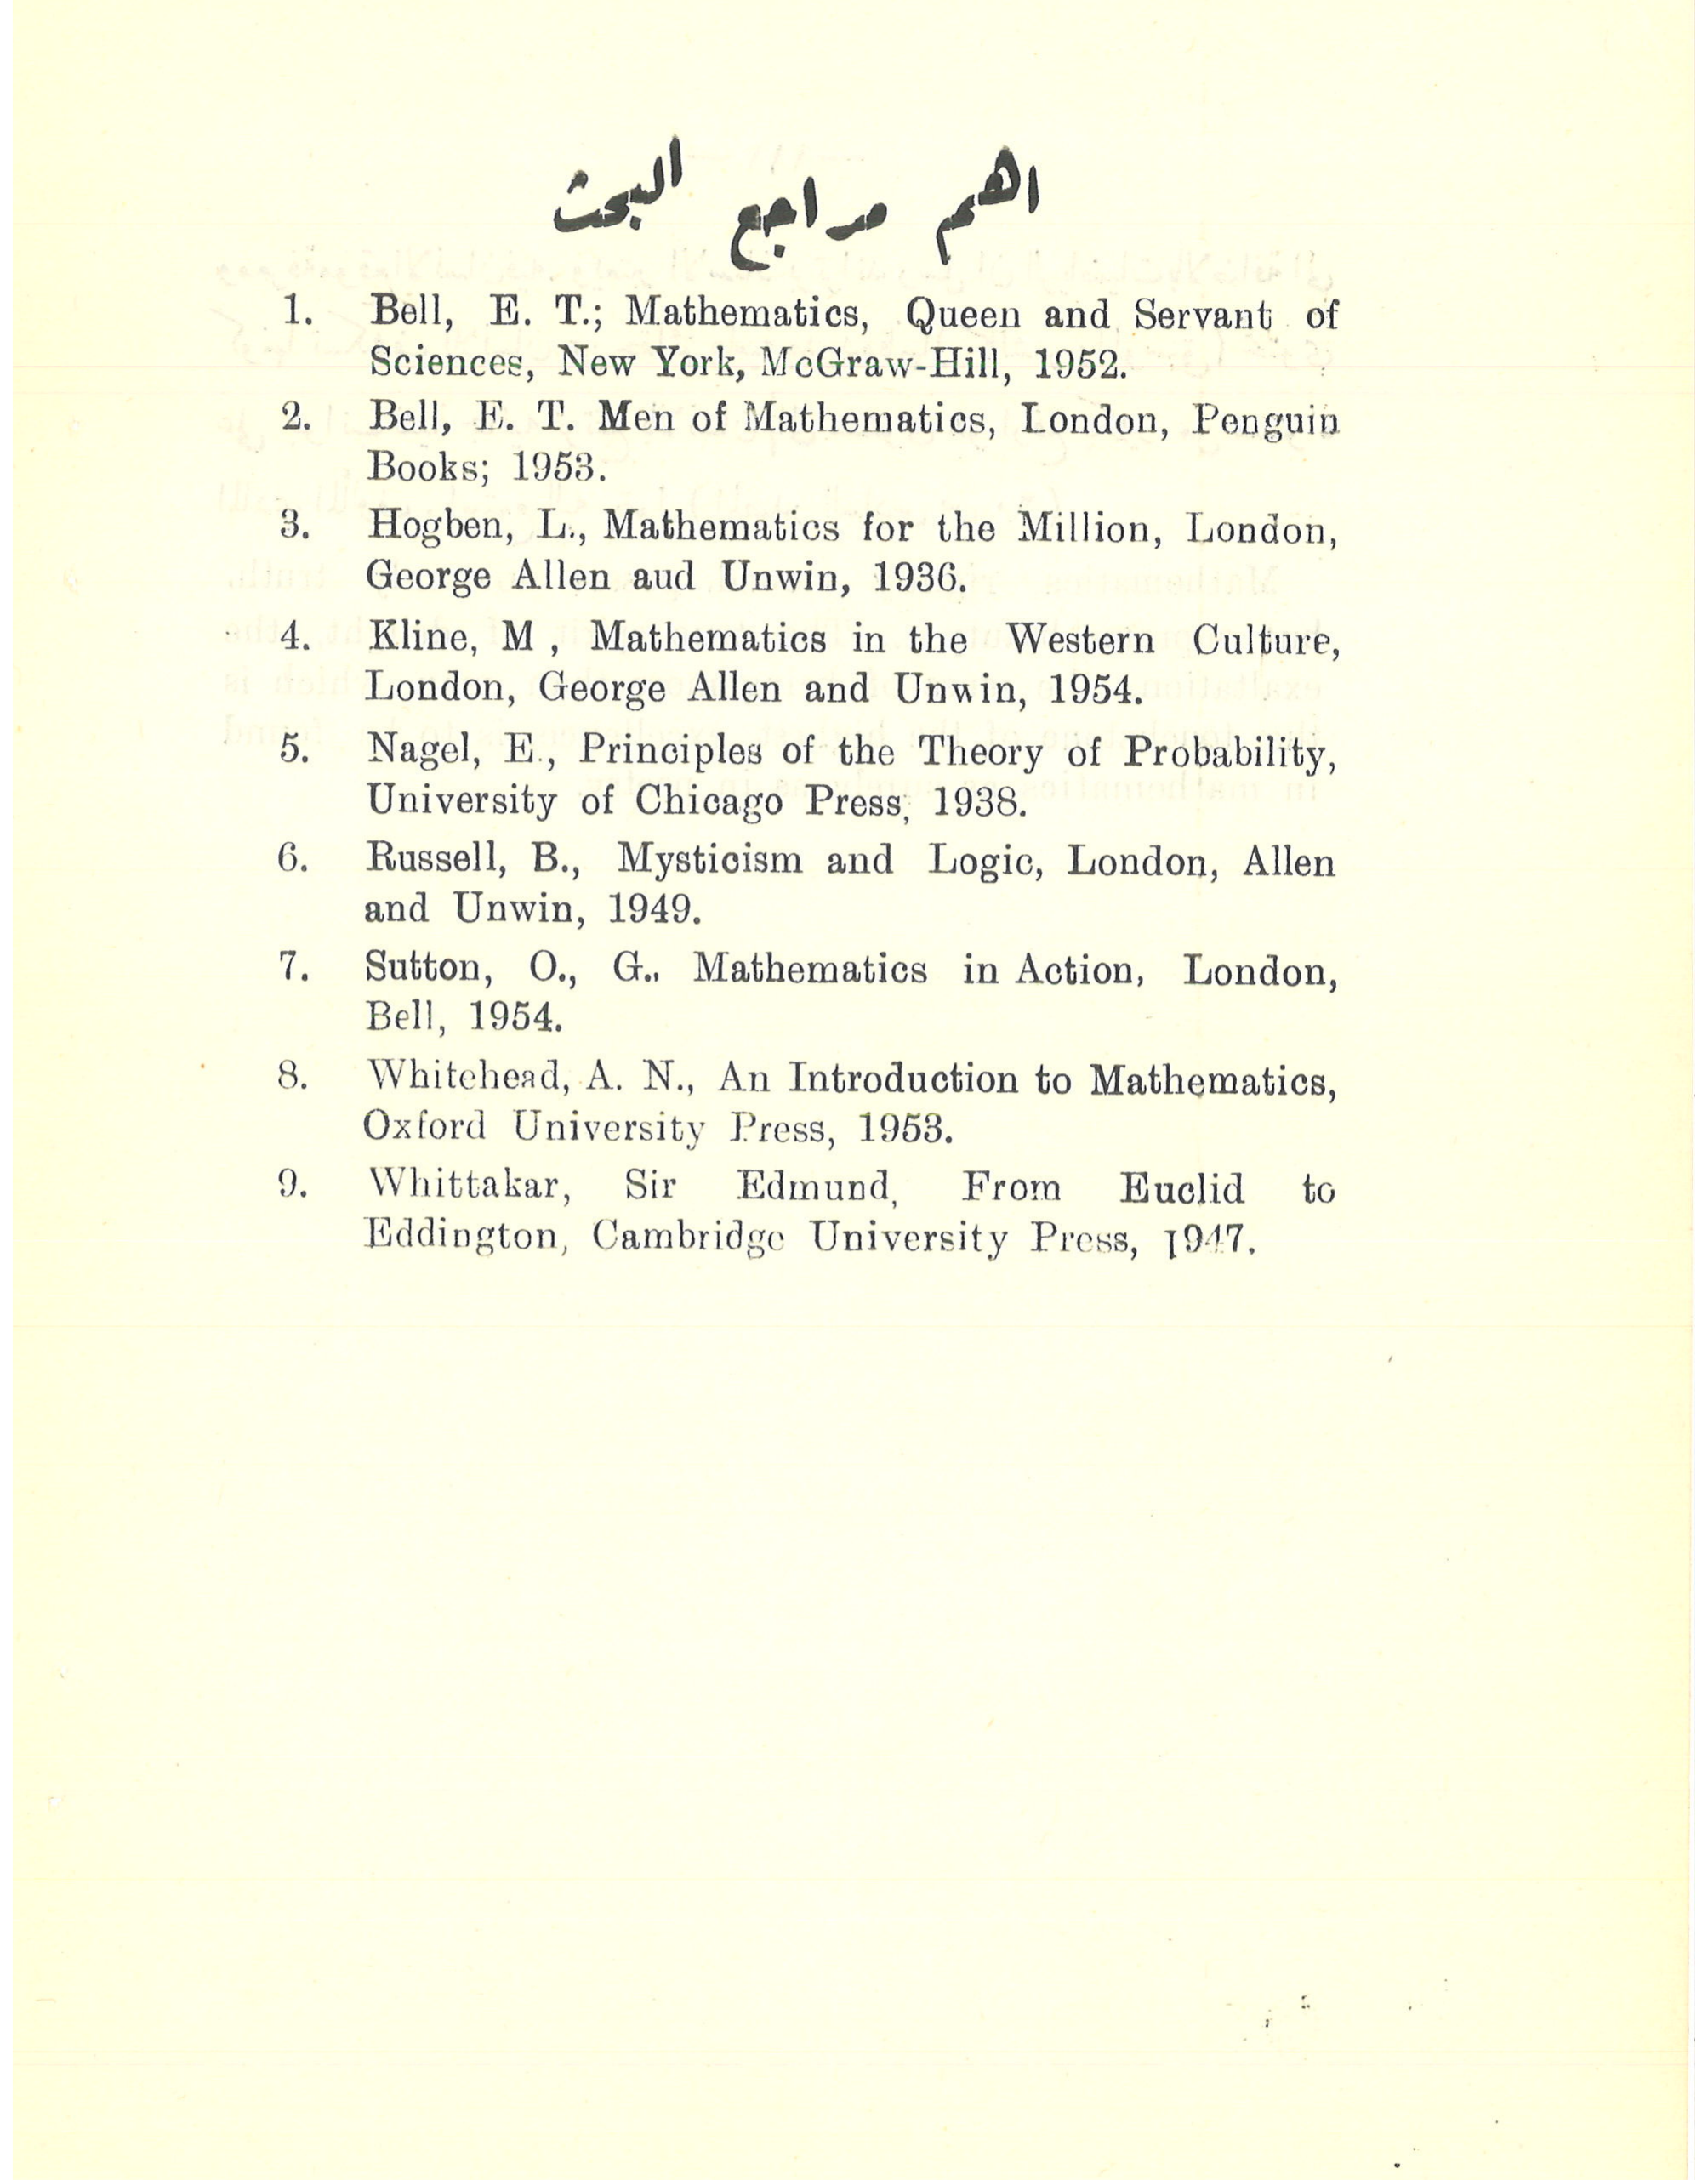 اهم مراجع البحث
1. Bell, E. T.; Mathematics, Queen and Servant of
Sciences, New York, McGraw-Hill, 1952.
2. Bell, E. T. Men of Mathematics, London, Penguin
Books; 1953.
3. Hogben, L., Mathematics for the Million, London,
George Allen aud Unwin, 1936.
4. Kline, M , Mathematics in the Western Culture,
London, George Allen and Unwin, 1954.
5. Nagel, E., Principles of the Theory of Probability,
University of Chicago Press, 1938.
6. Russell, B., Mysticism and Logic, London, Allen
and Unwin, 1949.
7. Sutton, O., G., Mathematics in Action, London,
Bell, 1954.
8. Whitehead, A. N., An Introduction to Mathematics,
Oxford University Press, 1953.
9. Whittakar, Sir Edmund, From Euclid to
Eddington, Cambridge University Press, 1947.